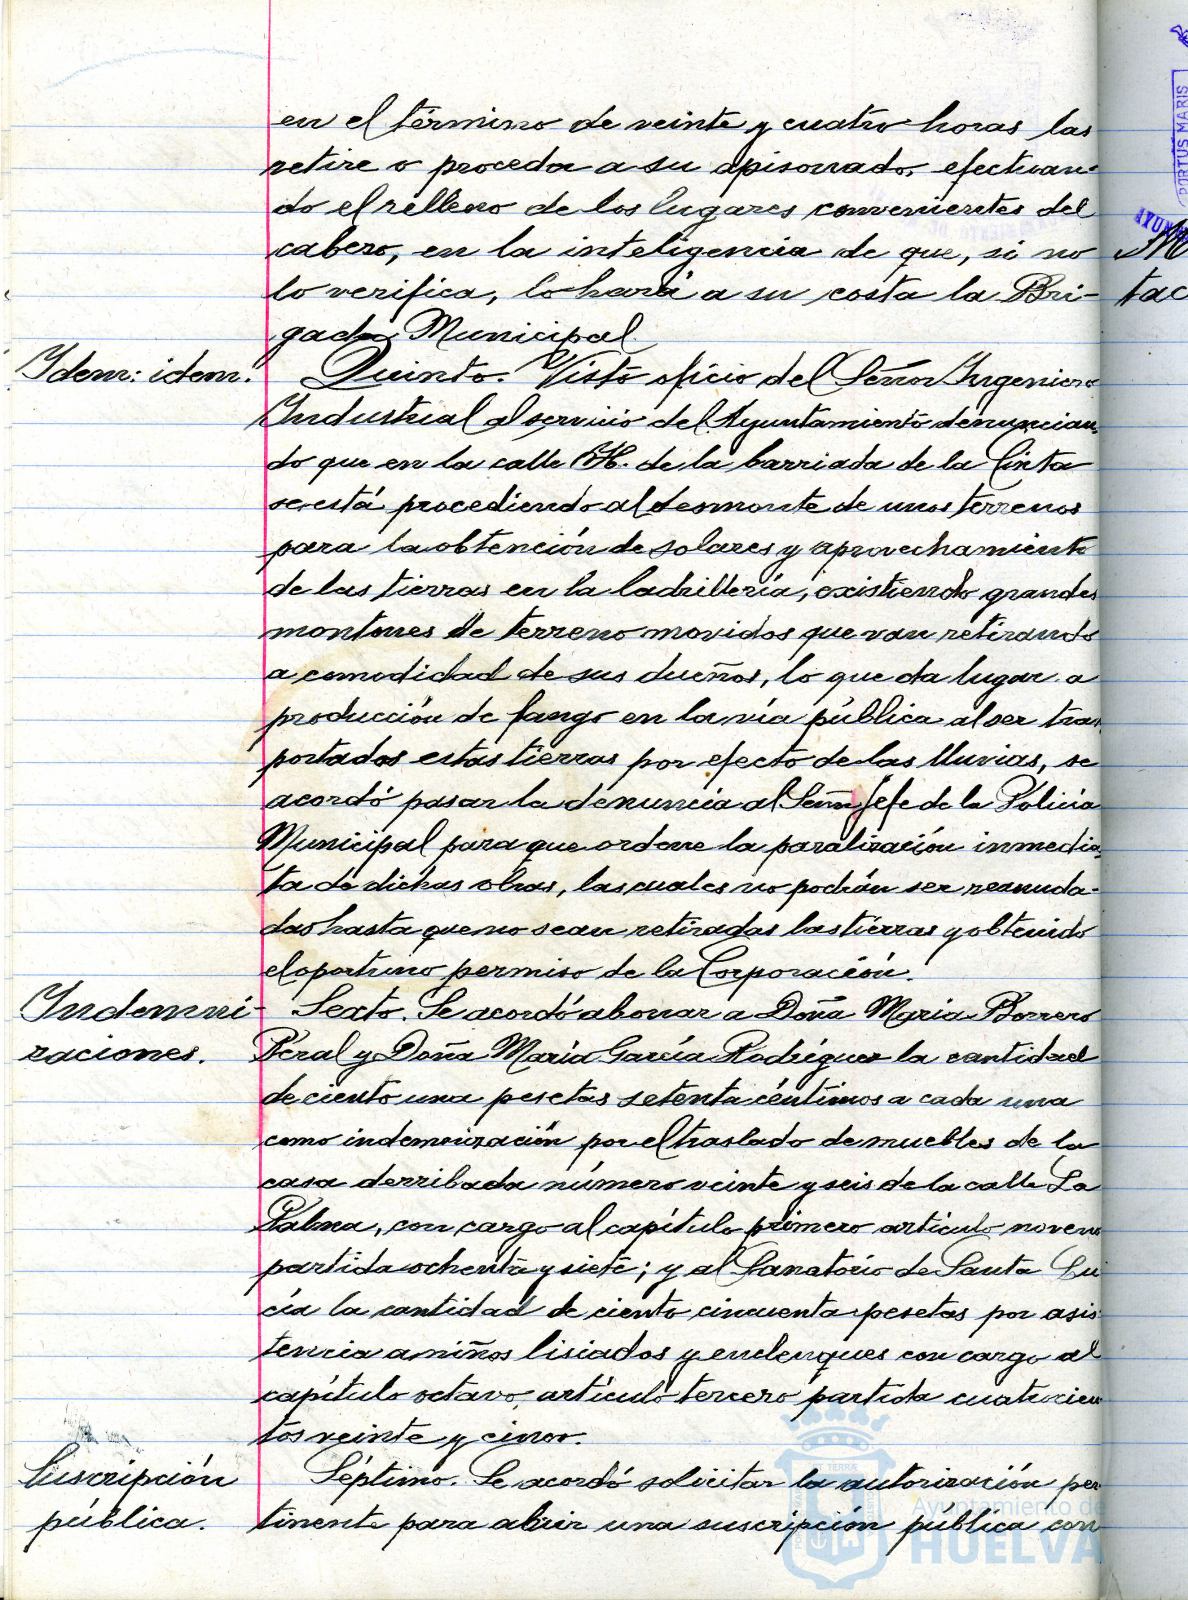 en el término de veinte y cuatro horas las
retire o proceda a su apisonado, efectuan-
do el relleno de los lugares convenientes del
cabezo, en la inteligencia de que, si no
lo verifica, lo hará a su costa la Bri-
gada Municipal.
Idem: idem.
Quinto. Visto oficio del Señor Ingeniero
Industrial al servicio del Ayuntamiento denuncian-
do que en la calle H. de la barriada de la Cinta
se está procediendo al desmonte de unos terrenos
para la obtención de solares y aprovechamiento
de las tierras en la ladrillería, existiendo grandes
montones de terreno movidos que van retirando
a comodidad de sus dueños, lo que da lugar a
producción de fango en la vía pública al ser tras
portados estas tierras por efecto de las lluvias, se
acordó pasar la denuncia al Señor Jefe de la Policía
Municipal para que ordene la paralización inmedia-
ta de dichas obras, las cuales no podrán ser reanuda-
das hasta que no sean retiradas las tierras y obtenido
el oportuno permiso de la Corporación.
Indemni-
zaciones.
Sexto. Se acordó abonar a Doña María Borrero
Peral y Doña María García Rodríguez la cantidad
de ciento una pesetas setenta céntimos a cada una
como indemnización por el traslado de muebles de la
casa derribada número veinte y seis de la calle La
Palma, con cargo al capítulo primero artículo noveno
partida ochenta y siete; y al Sanatorio de Santa Lu
cía la cantidad de ciento cincuenta pesetas por asis
tencia a niños lisiados y enclenques con cargo al
capítulo octavo, artículo tercero partida cuatrocien
tos veinte y cinco.
Suscripción
pública.
Séptimo. Se acordó solicitar la autorización per
tinente para abrir una suscripción pública con
Ayuntamiento de
HUELVA
PORTUS MARIS